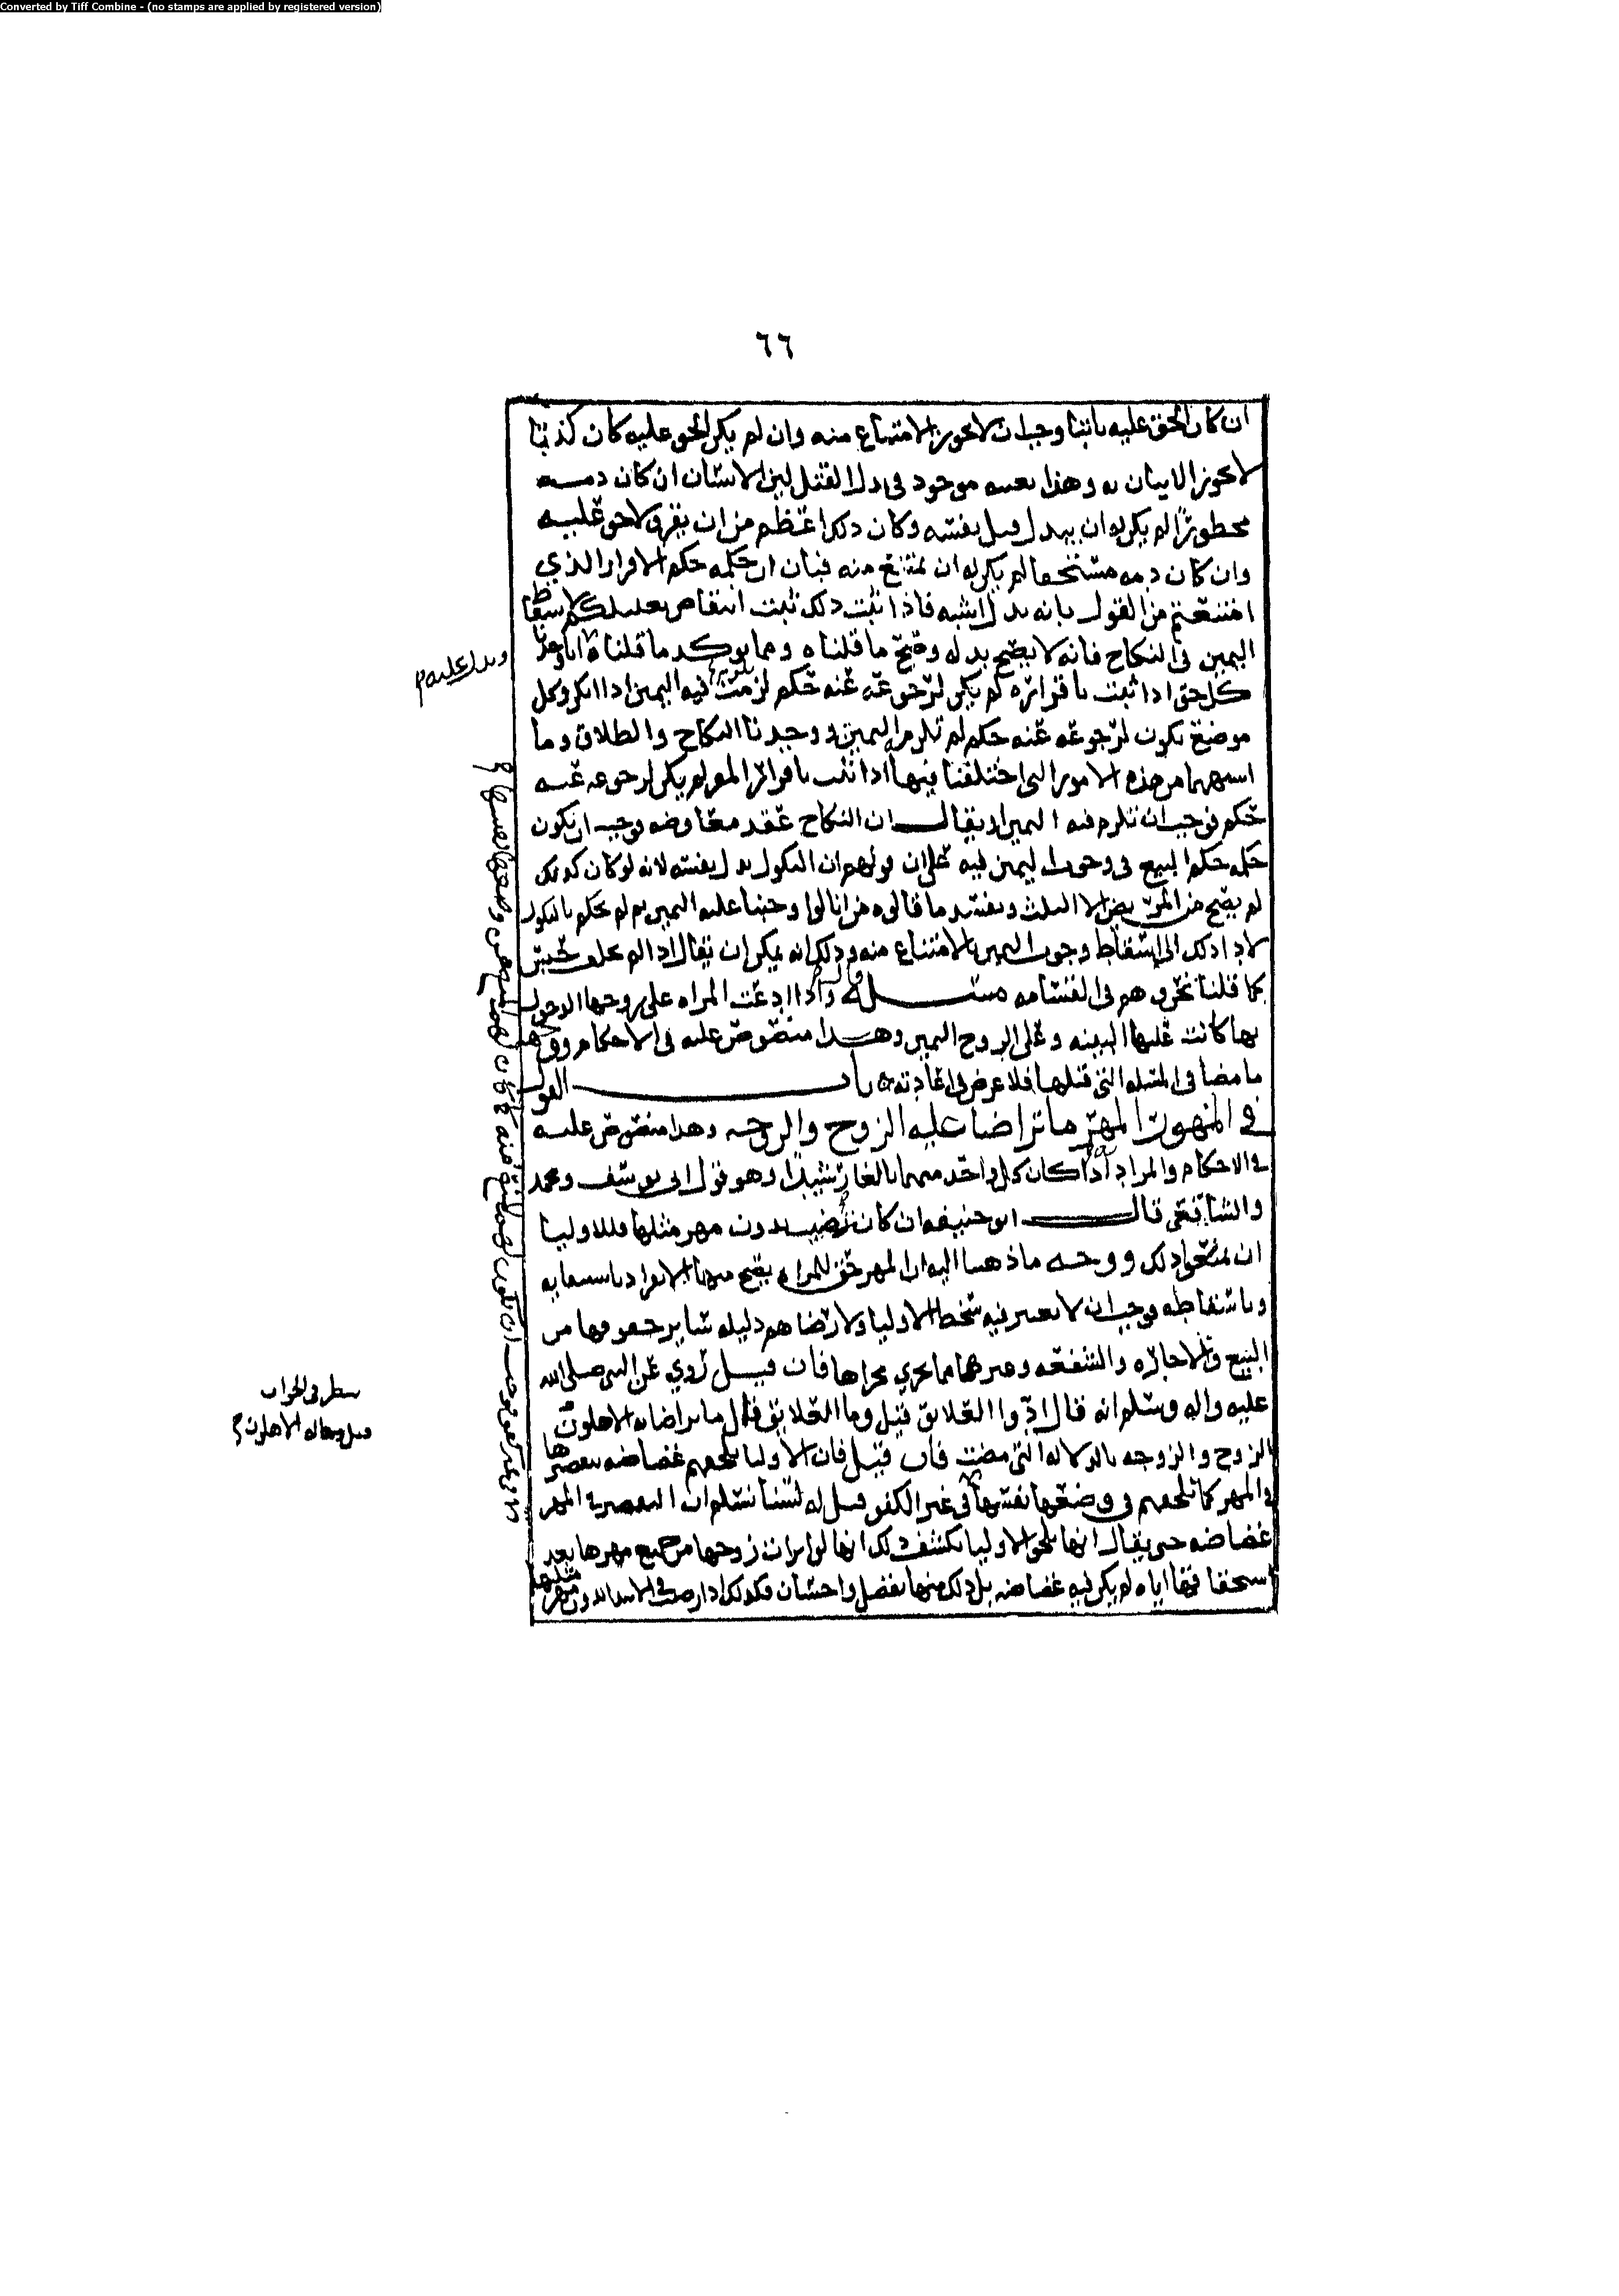 Converted by Tiff Combine - (no stamps are applied by registered version)
٦٦
ان كان الحق عليه ثابتا وجب ان لا يجوز الامتناع منه وان لم يكن الحق عليه كان كذبا
لا يجوز الاتيان به وهذا بعينه موجود في بدل القتل لان الانسان ان كان دمه
محظورا لم يكن له ان يبدل نفسه وكان ذلك اعظم من ان يقر بما لا حق عليه
وان كان دمه مستحقا لم يكن له ان يمتنع منه فبان ان حكمه حكم الاقرار الذي
امتنعتم من القول بانه بدل اشبه فاذا ثبت ذلك ثبت انتقاض تعليلكم لاسقاط
اليمين في النكاح فانه لا يصح بدله وصح ما قلناه ومما يوكد ما قلناه انا وجدنا
كل حق اذا ثبت باقراره لم يكن لرجوعه عنه حكم لزمت فيه اليمين اذا انكر وكل
موضع يكون لرجوعه عنه حكم لم تلزم اليمين ووجدنا النكاح والطلاق وما
اشبههما من هذه الامور التي اختلفنا فيها اذا ثبت باقرار المقر لم يكن لرجوعه عنه
حكم فوجب ان تلزم فيه اليمين او يقال ان النكاح عقد معاوضه فوجب ان يكون
حكمه حكم البيع في وجوب اليمين فيه على ان قولهم ان النكول بدل يفسد لانه لو كان كذلك
لم يصح من المريض الا الثلث ويفسد ما قالوه من انا لو اوجبنا عليه اليمين ثم لم نحكم بالنكول
لادا ذلك الى اسقاط وجوب اليمين بالامتناع منه وذلك انه يمكن ان يقال اذا لم يحلف حبس
كما قلنا نحن وهم في القسامه مسئله واذا ادعت المراه على زوجها الدخول
بها كانت عليها البينه وعلى الزوج اليمين وهذا منصوص عليه في الاحكام ووجهه
ما مضا في المسئله التي قبلها فلا غرض في اعادته باب القول
في المهور المهر ما تراضا عليه الزوج والزوجه وهذا منصوص عليه
في الاحكام والمراد اذا كان كل واحد منهما بالغا رشيدا وهو قول ابي يوسف ومحمد
والشافعي قال ابو حنيفه ان كان رضيت بدون مهر مثلها فللاوليا
ان يمنعوا ذلك ووجه ما ذهبنا اليه ان المهر حق للمراه يصح منها الانفراد باستيفايه
وباسقاطه فوجب ان لا يعتبر فيه سخط الاوليا ولا رضاهم دليله سائر حقوقها من
البيع والاجاره والشفعه وغيرهما مما يجري مجراها فان قيل روي عن النبي صلى الله
عليه واله وسلم انه قال ادوا العلائق قيل وما العلائق قال ما تراضا به الاهلون
الزوج والزوجه بالدلاله التي مضت فان قيل فان الاوليا يلحقهم غضاضه بتقصيرها
في المهر كما يلحقهم في وضعها نفسها في غير الكفو قيل له لسنا نسلم ان التقصير في المهر
غضاضه حتى يقال انها تلحق الاوليا يكشف ذلك انها لو ابرات زوجها من جميع مهرها بعد
استحقاقها اياه لم يكن فيه غضاضه بل ذلك منها تفضل واحسان فكذلك اذا رضيت في الابتدا بدون مهر مثلها
ينظر في الجواب